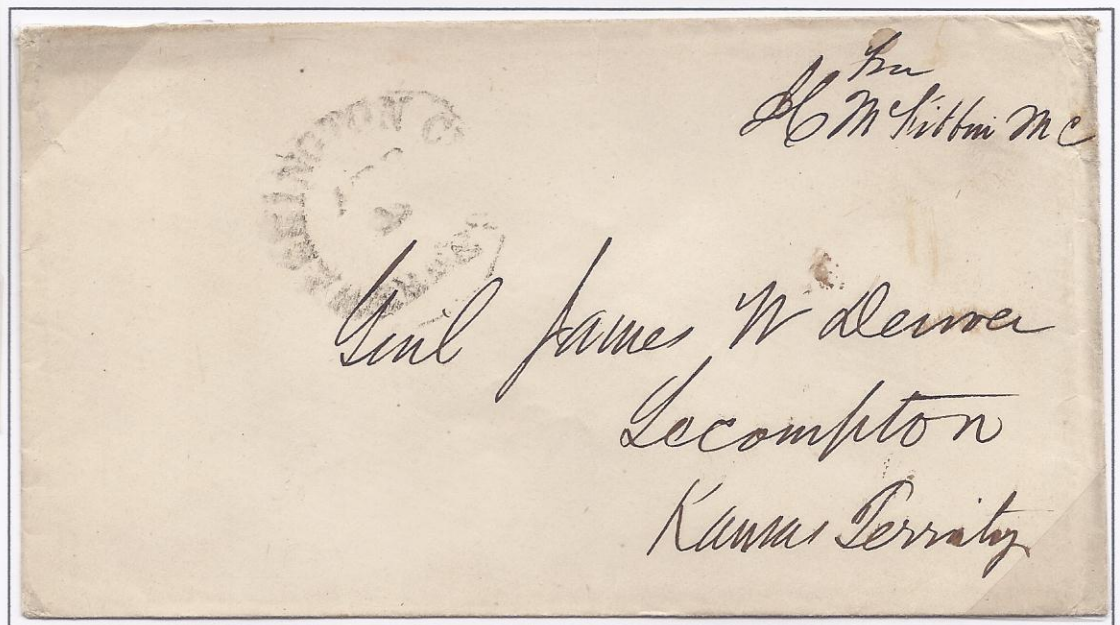 Free
J C McKibbin M C
WASHINGTON C
Genl James W Denver
Lecompton
Kansas Territy